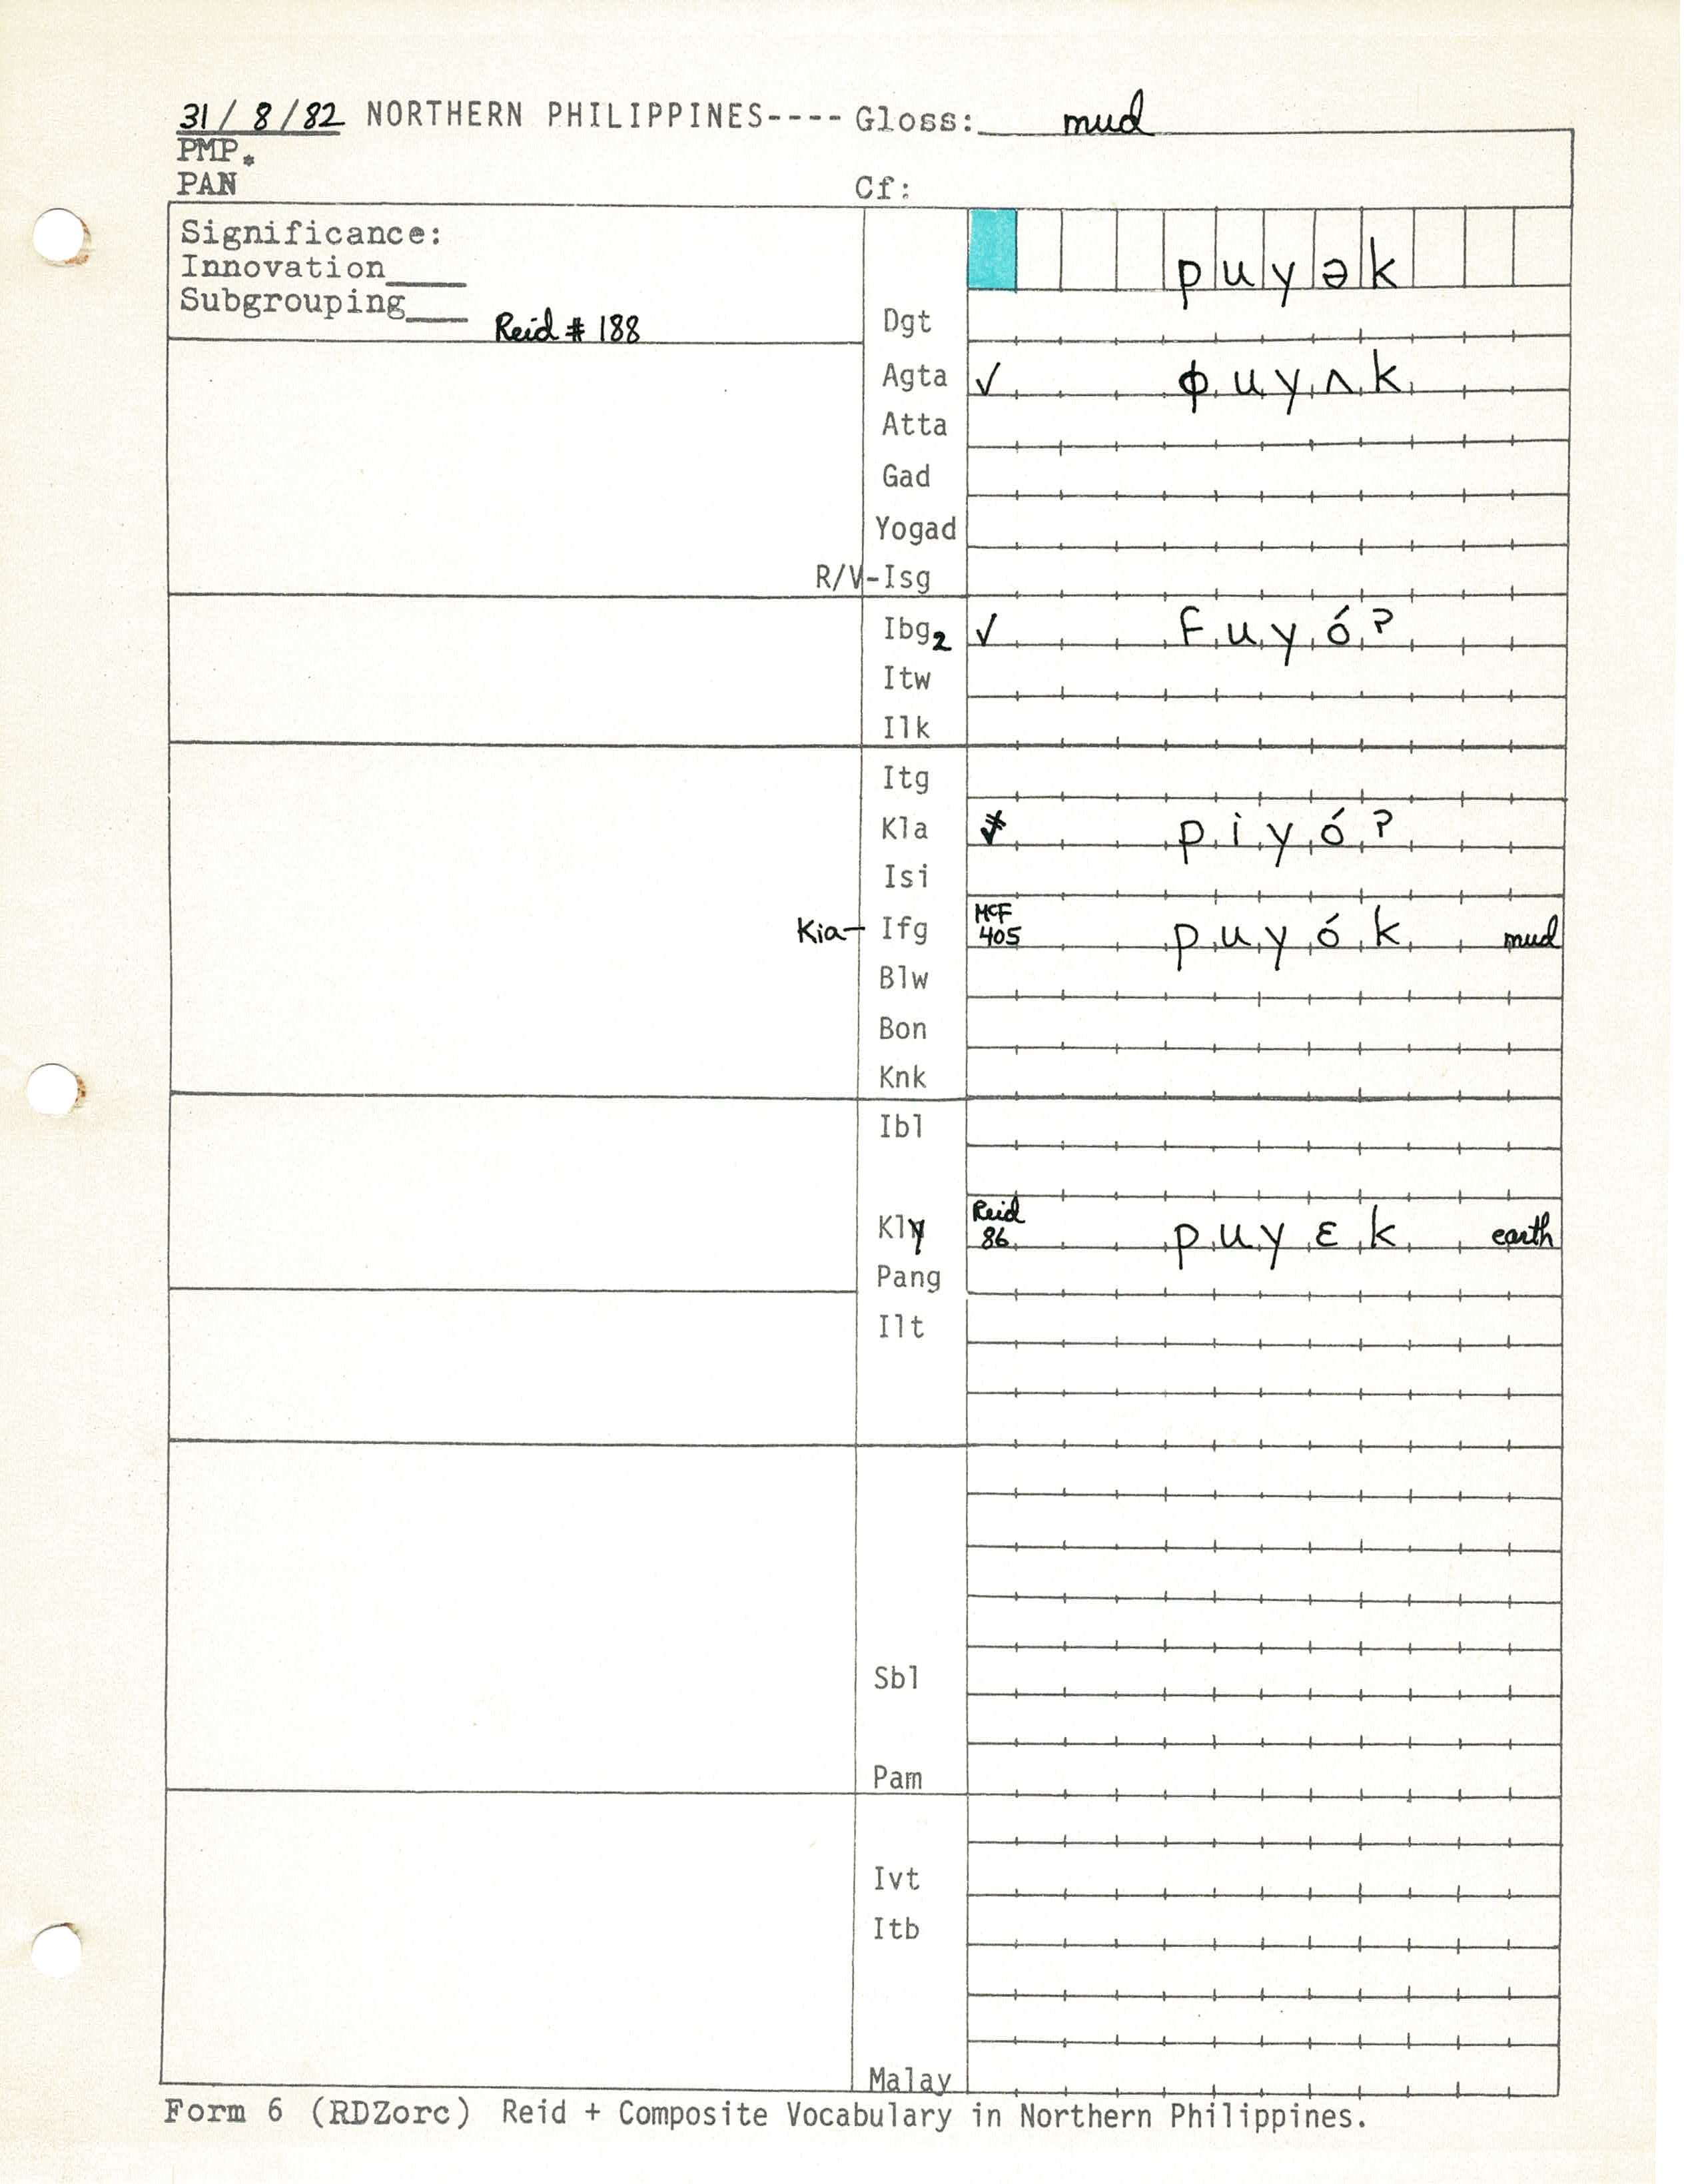 31/8/82 NORTHERN PHILIPPINES---- Gloss: mud
PMP*
PAN Cf:
Significance:
Innovation____
Subgrouping___
Reid # 188
puyək
Dgt
Agta ✓ ɸuyʌk
Atta
Gad
Yogad
R/V-Isg
Ibg2 ✓ fuyóʔ
Itw
Ilk
Itg
Kla piyóʔ
Isi
Kia- Ifg McF 405 puyók mud
Blw
Bon
Knk
Ibl
Kly Reid 86 puyɛk earth
Pang
Ilt
Sbl
Pam
Ivt
Itb
Malay
Form 6 (RDZorc) Reid + Composite Vocabulary in Northern Philippines.